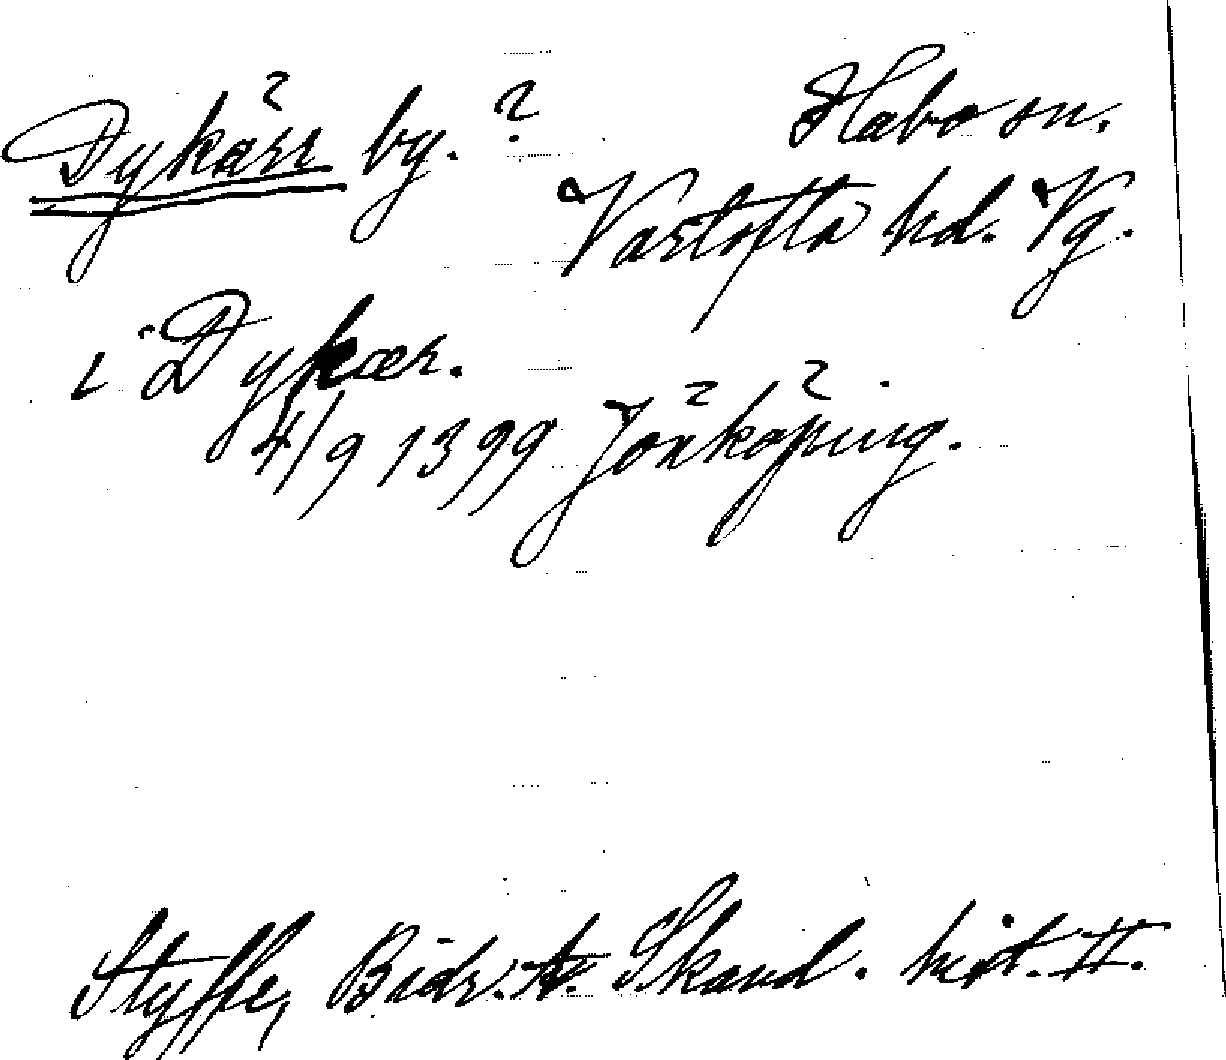 Dykärr by. ?
Habo sn.
Vartofta hd. Vg.
i Dykær.
4/9 1399 Jönköping.
Styffe, Bidr. t. Skand. hist. II.